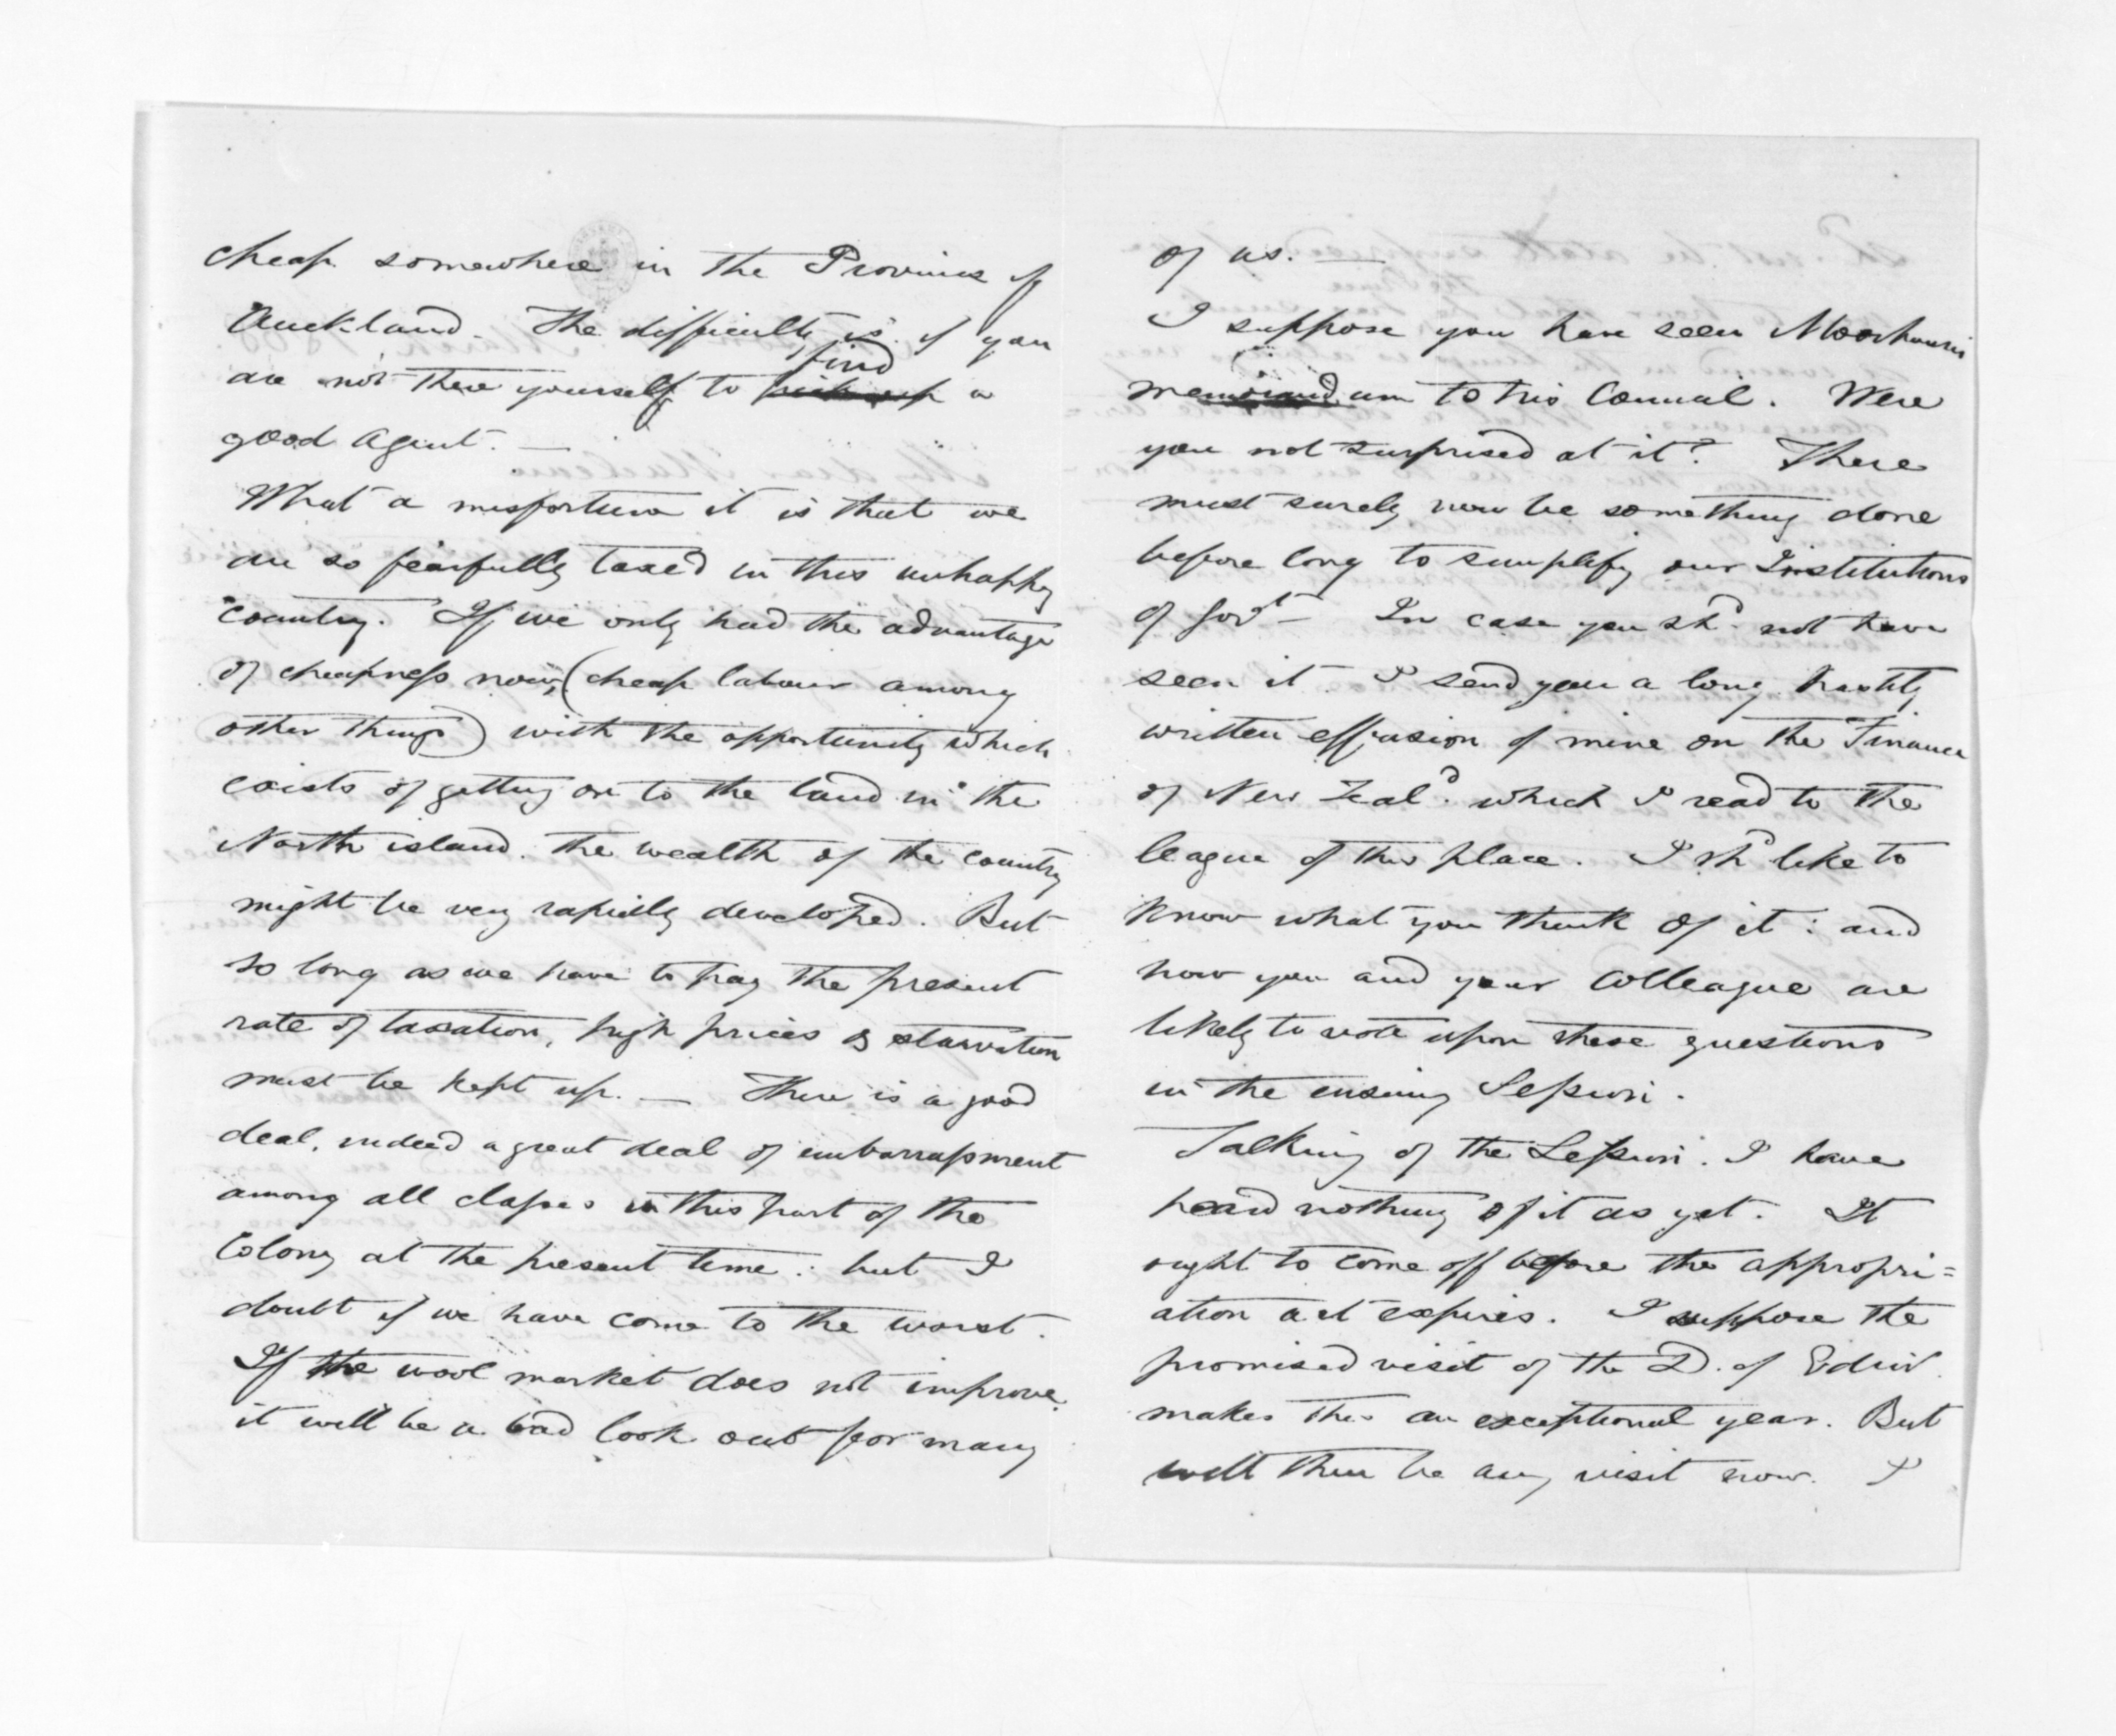 cheap somewhere in the Province of
Auckland. The difficulty is if you
are not there yourself to find a
good agent. —
What a misfortune it is that we
are so fearfully taxed in this unhappy
country. If we only had the advantage
of cheapness now, (cheap labour among
other things) with the opportunity which
exists of getting on to the land in the
North island. the wealth of the country
might be very rapidly developed. But
so long as we have to pay the present
rate of taxation, high prices & starvation
must be kept up. — There is a good
deal, indeed a great deal of embarrassment
among all classes in this part of the
Colony at the present time: but I
doubt if we have come to the worst.
If the wool market does not improve
it will be a bad look out for many
of us. —
I suppose you have seen Moorhouse's
memorandum to his Council. Were
you not surprised at it? There
must surely now be something done
before long to simplify our Institutions
of Govt — In case you shd. not have
seen it I send you a long hastily
written effusion of mine on the Finance
of New Zeald. which I read to the
league of this place. I shd like to
know what you think of it: and
how you and your colleague are
likely to vote upon these questions
in the ensuing Session.
Talking of the Session. I have
heard nothing of it as yet. It
ought to come off before the appropri=
ation act expires. I suppose the
promised visit of the D. of Edin.
makes this an exceptional year. But
will there be any visit now. I